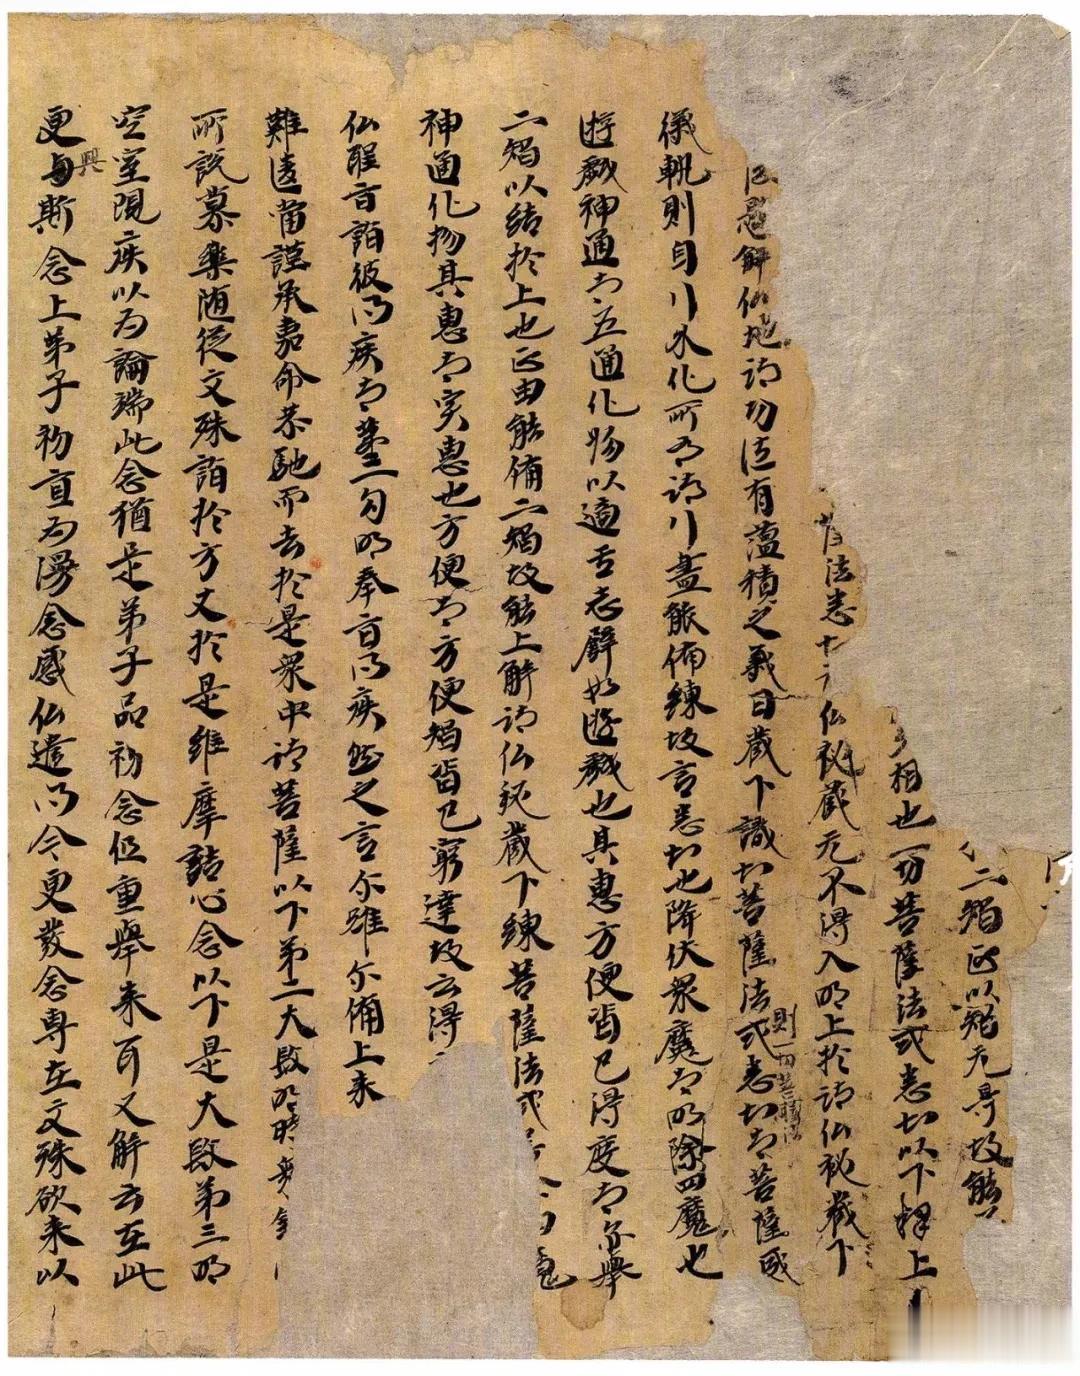 二智正以智无㝵故能
相也一切菩薩法式悉知以下釋上
法悉知 仏祕藏无不得入明上於諸仏祕藏下
解仏地諸功德有薀積之義曰藏下識知菩薩法式悉知者菩薩
則一切菩薩法
儀軌則自行外化所有諸行盡能備練故言悉知也降伏衆魔者明除四魔也
遊戯神通者五通化物以適吾志譬如遊戯也其惠方便皆已得度者亦舉
二智以結於上也正由能備二智故能上解諸仏祕藏下練菩薩法式
神通化物其惠者實惠也方便者方便智皆已窮達故云得
仏聖旨詣彼問疾者第二句明奉旨問疾然之言尓雖尓備上来
難遠當謹承嘉命恭馳而去於是衆中諸菩薩以下第二大段明時衆
所説慕樂随從文殊詣於方丈於是維摩詰心念以下是大段第三明
空室現疾以为論瑞此念猶是弟子品初念但重舉来耳又解云在此
更興斯念上弟子初直为漫念感仏遣问今更發念専在文殊欲来以